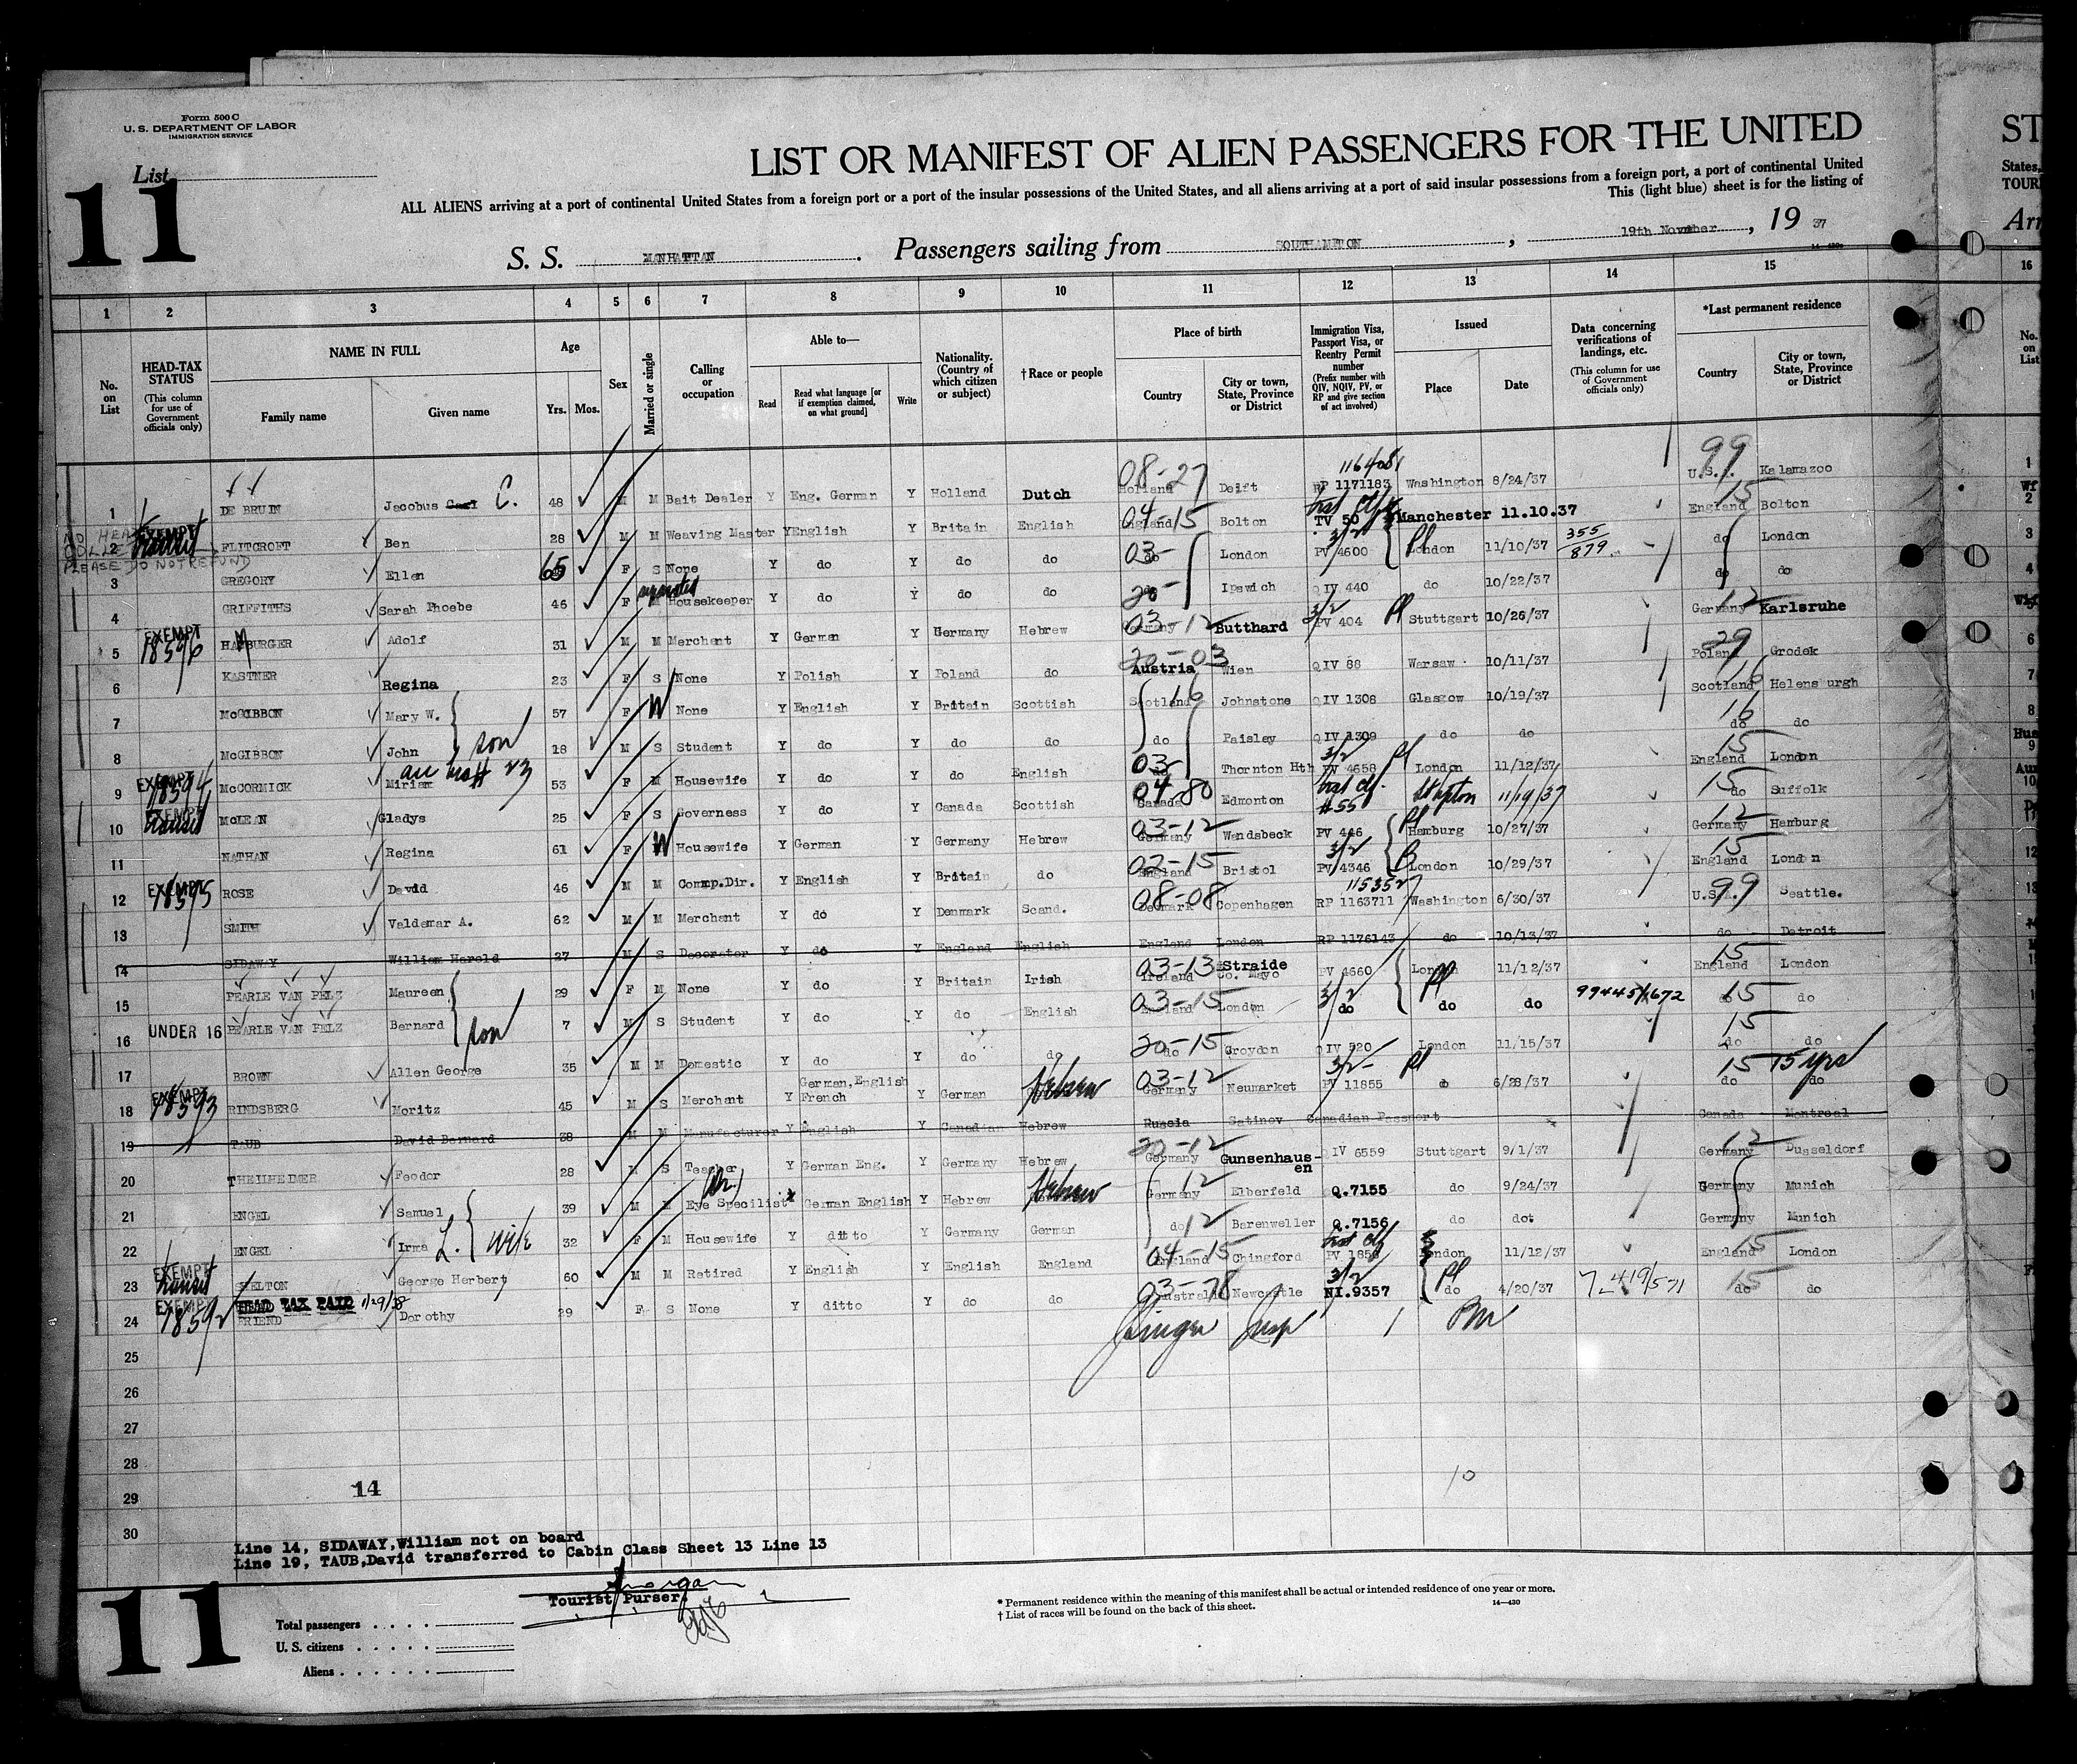 Form 500 C
U. S. DEPARTMENT OF LABOR
IMMIGRATION SERVICE
List
11
LIST OR MANIFEST OF ALIEN PASSENGERS FOR THE UNITED
ST
ALL ALIENS arriving at a port of continental United States from a foreign port or a port of the insular possessions of the United States, and all aliens arriving at a port of said insular possessions from a foreign port, a port of continental United
States,
This (light blue) sheet is for the listing of
TOUR
S. S. MANHATTAN. Passengers sailing from SOUTHAMPTON, 19th November, 19 37
Arr
1 2 3 4 5 6 7 8 9 10 11 12 13 14 15 16
No. on List
HEAD-TAX STATUS (This column for use of Government officials only)
NAME IN FULL Family name Given name
Age Yrs. Mos.
Sex
Married or single
Calling or occupation
Able to— Read Read what language [or if exemption claimed, on what ground] Write
Nationality. (Country of which citizen or subject)
†Race or people
Place of birth Country City or town, State, Province or District
Immigration Visa, Passport Visa, or Reentry Permit number (Prefix number with QIV, NQIV, PV, or RP and give section of act involved)
Issued Place Date
Data concerning verifications of landings, etc. (This column for use of Government officials only)
*Last permanent residence Country City or town, State, Province or District
No. on List
1 DE BRUIN Jacobus Carl C. 48 M M Bait Dealer Y Eng. German Y Holland Dutch 08-27 Holland Delft 116408 RP 1171183 Washington 8/24/37 99 U.S.A. Kalamazoo
2 EXEMPT transit FLITCROFT Ben 28 M M Weaving Master Y English Y Britain English 04-15 England Bolton TV 50 Manchester 11.10.37 15 England Bolton
PLEASE DO NOT REFUND
3 GREGORY Ellen 65 F S None Y do Y do do 03- do London 3/2 PV 4600 London 11/10/37 355/879 do London
4 GRIFFITHS Sarah Phoebe 46 F M separated Housekeeper Y do Y do do 20- do Ipswich QIV 440 do 10/22/37 do do
5 EXEMPT 18596 HAMBURGER Adolf 31 M M Merchant Y German Y Germany Hebrew 03-12 Germany Butthard 3/2 PV 404 Stuttgart 10/26/37 12 Germany Karlsruhe
6 KASTNER Regina 23 F S None Y Polish Y Poland do 20-03 Austria Wien QIV 88 Warsaw 10/11/37 29 Poland Grodek
7 McGIBBON Mary W. 57 F W None Y English Y Britain Scottish 16 Scotland Johnstone QIV 1308 Glasgow 10/19/37 16 Scotland Helensburgh
8 McGIBBON John son 18 M S Student Y do Y do do do Paisley QIV 1309 do do 16 do do
9 EXEMPT 18594 McCORMICK Miriam 53 F M Housewife Y do Y do English 03- Thornton Hth 3/2 PV 4658 London 11/12/37 15 England London
10 EXEMPT transit McLEAN Gladys 25 F S Governess Y do Y Canada Scottish 04-80 Canada Edmonton #55 11/19/37 15 do Suffolk
11 NATHAN Regina 61 F W Housewife Y German Y Germany Hebrew 03-12 Germany Wandsbeck PV 446 Hamburg 10/27/37 12 Germany Hamburg
12 EXEMPT 18595 ROSE David 46 M M Comp.Dir. Y English Y Britain do 02-15 England Bristol 3/2 PV 4346 London 10/29/37 15 England London
13 SMITH Valdemar A. 62 M M Merchant Y do Y Denmark Scand. 08-08 Denmark Copenhagen RP 1163711 Washington 6/30/37 99 U.S.A. Seattle.
14 SIDAWAY William Harold 27 M S Decorator Y do Y England English England London RP 1176143 do 10/13/37 do Detroit
15 PEARLE VAN PELZ Maureen 29 F M None Y do Y Britain Irish 03-13 Ireland Straide Co. Mayo PV 4660 London 11/12/37 15 England London
16 UNDER 16 PEARLE VAN PELZ Bernard son 7 M S Student Y do Y do English 03-15 England London 3/2 do do do 15 do do
17 BROWN Allen George 35 M M Domestic Y do Y do do 20-15 do Croydon QIV 520 London 11/15/37 15 do do
18 EXEMPT 18593 RINDSBERG Moritz 45 M S Merchant Y German, English French Y German Hebrew 03-12 Germany Neumarket 3/2 PV 11855 do 6/28/37 15 do do
19 TAUB David Bernard 38 M M Manufacturer Y English Y Canadian Hebrew Russia Satinov Canadian Passport Canada Montreal
20 THEILHEIMER Feodor 28 M S Teacher Y German Eng. Y Germany Hebrew 20-12 Germany Gunsenhausen QIV 6559 Stuttgart 9/1/37 12 Germany Dusseldorf
21 ENGEL Samuel 39 M M Eye Specilist (Dr.) German English Y Hebrew Hebrew 12 Germany Elberfeld Q.7155 do 9/24/37 Germany Munich
22 ENGEL Irma L. wife 32 F M Housewife Y ditto Y Germany German 12 do Barenweller Q.7156 do dot Germany Munich
23 EXEMPT transit SKELTON George Herbert 60 M M Retired Y English Y English England 04-15 England Chingford London 11/12/37 15 England London
24 EXEMPT 18592 HEAD TAX PAID FRIEND Dorothy 29 F S None Y ditto Y do do 03-78 Australia Newcastle 3/2 NI.9357 do 4/20/37 15 do do
25
26
27
28
29 14 10
30
Line 14, SIDAWAY,William not on board
Line 19, TAUB,David transferred to Cabin Class Sheet 13 Line 13
11
Tourist Purser.
Total passengers
U. S. citizens
Aliens
* Permanent residence within the meaning of this manifest shall be actual or intended residence of one year or more.
† List of races will be found on the back of this sheet.
14—430